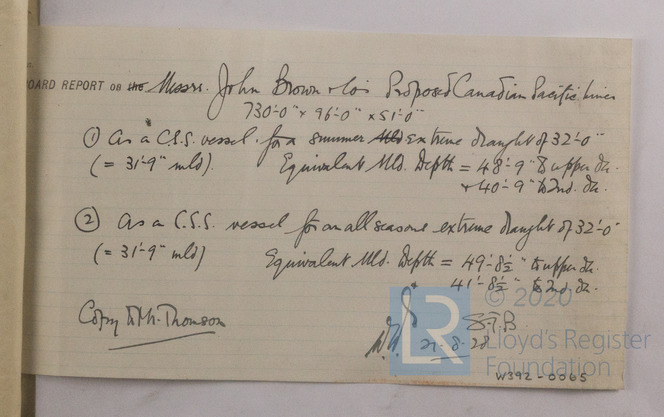 OARD REPORT on the Messrs. John Brown & Co's Proposed Canadian Pacific Liner
730'-0" x 96'-0" x 51'-0"
① As a C.S.S. vessel for a summer Mld extreme draught of 32'-0"
(= 31'-9" mld). Equivalent Mld. Depth = 48'-9" to upper dk.
+ 40'-9" to 2nd. dk.
② As a C.S.S. vessel for an all seasons extreme draught of 32'-0"
(= 31'-9" mld) Equivalent Mld. Depth = 49'-8½" to upper dk.
41'-8½" to 2nd. dk.
Copy to Mr. Thomson
S.T.B.
21-8-28
LR © 2020
Lloyd's Register
Foundation
W392-0065